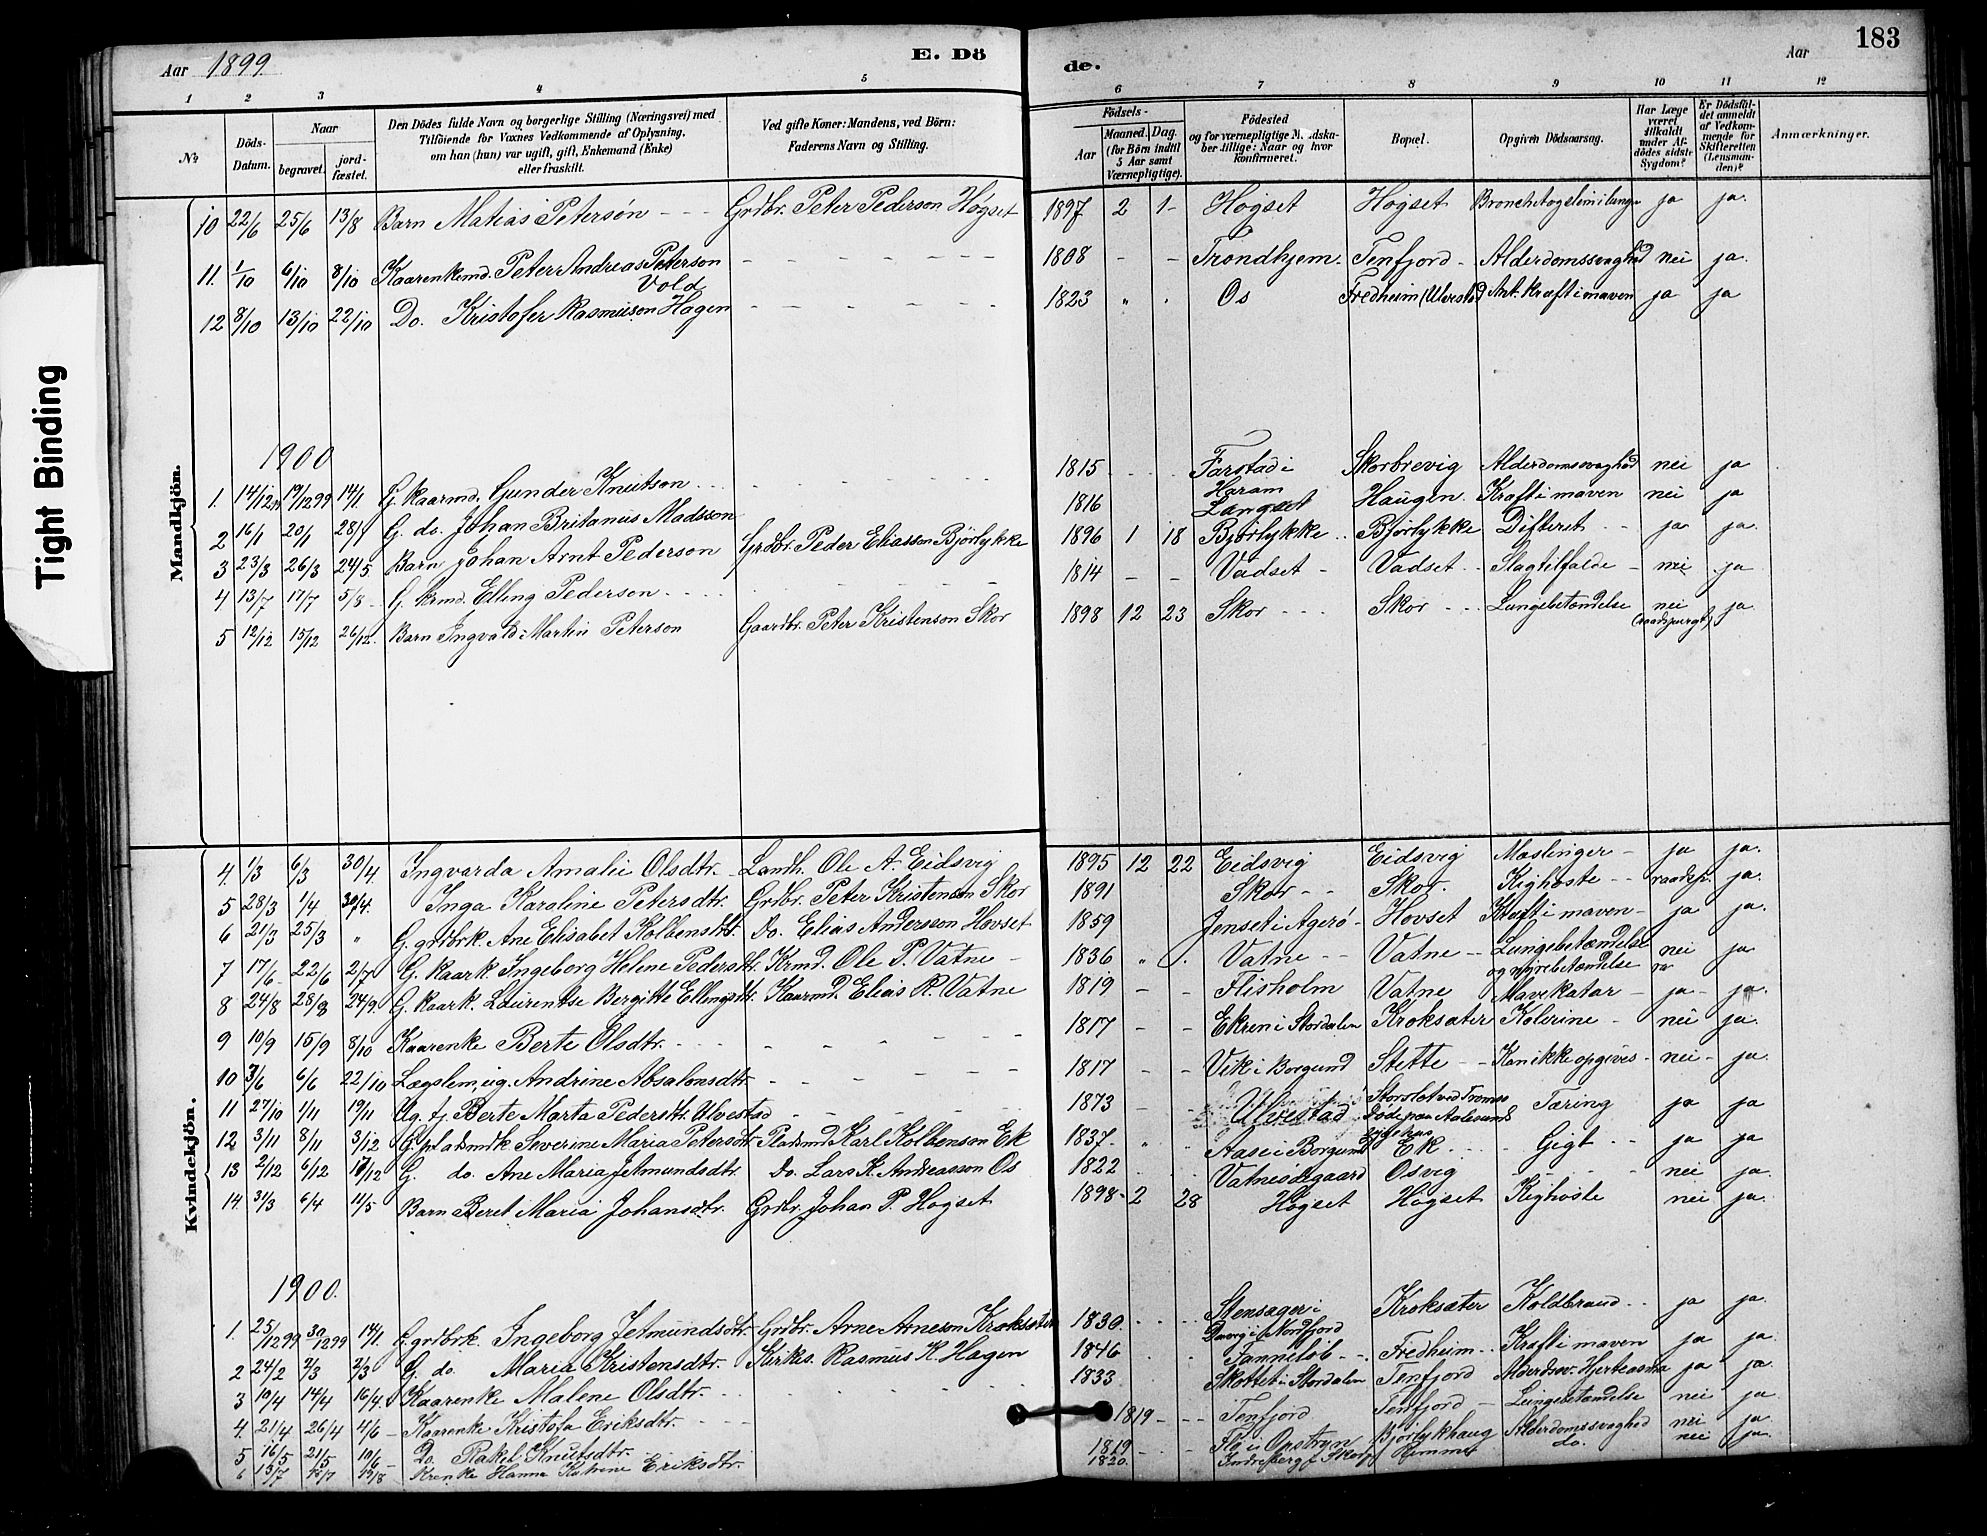 Tight Binding
Aar 1899
E. Dö
de.
Aar
183
1 2 3 4 5 6 7 8 9 10 11 12
No
Döds-Datum.
Naar
begravet.
jord-fæstet.
Den Dödes fulde Navn og borgerlige Stilling (Næringsvei) med
Tilföiende for Voxnes Vedkommende af Oplysning,
om han (hun) var ugift, gift, Enkemand (Enke)
eller fraskilt.
Ved gifte Koner: Mandens, ved Börn:
Faderens Navn og Stilling.
Födsels-
Aar
Maaned. Dag.
(for Börn indtil
5 Aar samt
Værnepligtige).
Födested
og for værnepligtige Mandskaber tillige: Naar og hvor
konfirmeret.
Bopæl.
Opgiven Dödsaarsag.
Har Læge
været
tilkaldt
under Afdödes sidste
Sygdom?
Er Dödsfaldet anmeldt
af Vedkommende for
Skifteretten
(Lensmanden)?
Anmærkninger.
Mandkjön.
10 22/6 25/6 13/8 Barn Matias Peterson - - - Grdbr. Peter Pederson Hogset 1897 2 1 - Hogset Hogset ja ja.
11. 1/10 6/10 8/10 Kaarenkemd. Peter Andreas Peterson Vold - - - 1808 - - Trondhjem. Tenfjord - Alderdomssvaghed nei ja.
12 8/10 13/10 22/10 Do. Kristofer Rasmuson Hagen - - - 1823 " . Os Fredheim (Ulvestad) Ant. kræft i maven ja ja
1900
1. 14/12 99 19/12 99 14/1. G. kaarmd. Gunder Knutson . . . 1815 - . . Farstad i Haram Skorbrevig Alderdomssvaghed nei ja
2 16/1 20/1 28/1 G. do. Johan Britanus Madsson 1816 Langset Haugen. Kræft i maven nei ja
3 23/3 26/3 24/5. Barn Johan Arnt Pederson Grdbr. Peder Eliasson Björlykke 1896 1 18 Björlykke . . Björlykke Difterit - - ja ja.
4 13/7 17/7 5/8 - G. krmd. Elling Pederson . . . . 1814 - - Vadset - Vadset - - Slagtilfælde - nei . ja
5 12/12 15/12 26/12. Barn Ingvald Martin Peterson Gaardbr. Peter Kristenson Skor 1898 12 23 Skor - - - Skor - - - Lungebetændelse nei (raadspurgt) ja
Kvindekjön.
4. 1/3 6/3 30/4. Ingvarda Amalie Olsdtr. - Landh. Ole A. Eidsvig 1895 12 22 Eidsvig Eidsvig Mæslinger - ja ja.
5 28/3 1/4 30/4. Inga Karoline Petersdtr. Grdbr. Peter Kristenson Skor 1891 Skor - - Skor. Kighoste - - raadsp. ja.
6 21/3 25/3 " G. grdbrk. Ane Elisabet Kolbensdtr. Do. Elias Andersson Hovset 1859 Jenset i Agerö - Hovset Kræft i maven - ja ja.
7 17/6 - 22/6 2/7 G. kaark. Ingeborg Helene Pedersdtr. Krmd. Ole P. Vatne - 1836 " . Vatne - - Vatne - - Lungebetændelse og nyrebetændelse nei ja.
8 24/8 28/8 24/9. G. kaark. Laurentse Bergitte Ellingsdtr. Kaarmd. Elias R. Vatne 1819 - - Flisholm Vatne Mavekatar - ja - ja.
9 10/9 15/9 8/10 Kaarenke Berte Olsdtr. - - - 1817 - - Ekren i Stordalen Kroksæter Kolerine - nei ja.
10 3/6 6/6 22/10 Lægslem, ug. Andrine Absalonsdtr. - - - 1817 - - Vik i Borgund Stette - - Kan ikke opgives - nei - ja.
11 27/10 1/11 19/11 Ug. tj. Berte Marta Pedersdtr. Ulvestad - - - 1873 - - Ulvestad Storslot ved Tromsö Döde paa Aalesunds sygehus Tæring ja ja
12 3/11 8/11 3/12 G. pladsmdk Severine Maria Petersdtr. Pladsmd Karl Kolbenson Ek 1837. " . Aase i Borgund Ek . . . . Gigt . - ja ja
13 2/12 6/12 17/12 G. do. Ane Maria Jetmundsdtr. Do. Lars K. Andreasson Os 1822 Vatnesödegaard Osvig - - - nei ja.
14. 31/3 6/4 11/5 Barn Beret Maria Johansdtr. Grdbr. Johan P. Hogset 1898 - 2 28 Hogset Hogset Kighoste nei ja.
1900.
1. 25/12 99 30/12 99 14/1. G. grdbrk. Ingeborg Jetmundsdtr. - Grdbr. Arne Arneson Kroksæter 1830. . . . Stensager i Nordfjord Kroksæter Koldbrand . . ja ja.
2 24/2 2/3 2/3 G. do. Maria Kristensdtr. Kirks. Rasmus K. Hagen 1846 . . Fanneløb - . Fredheim . . Kræft i maven ja ja.
3 10/4 14/4 16/4. Kaarenke Malene Olsdtr. . . 1833 Skottet i Stordalen Tenfjord ja ja.
4. 21/4 26/4 4/6 - Kaarenke Kristofa Eriksdtr. - - - 1819 - - - Tenfjord Tenfjord - Lungebetændelse nei ja.
5 16/5 21/5 10/6 - Do. Rakel Knutsdtr. 1819 - . . Flo i Opstryn Björlykhaug Alderdomssvaghed nei ja.
6 13/7 18/7 12/8 Krenke Hanna Katrine Eriksdtr. 1820. Rimmer do. nei ja.